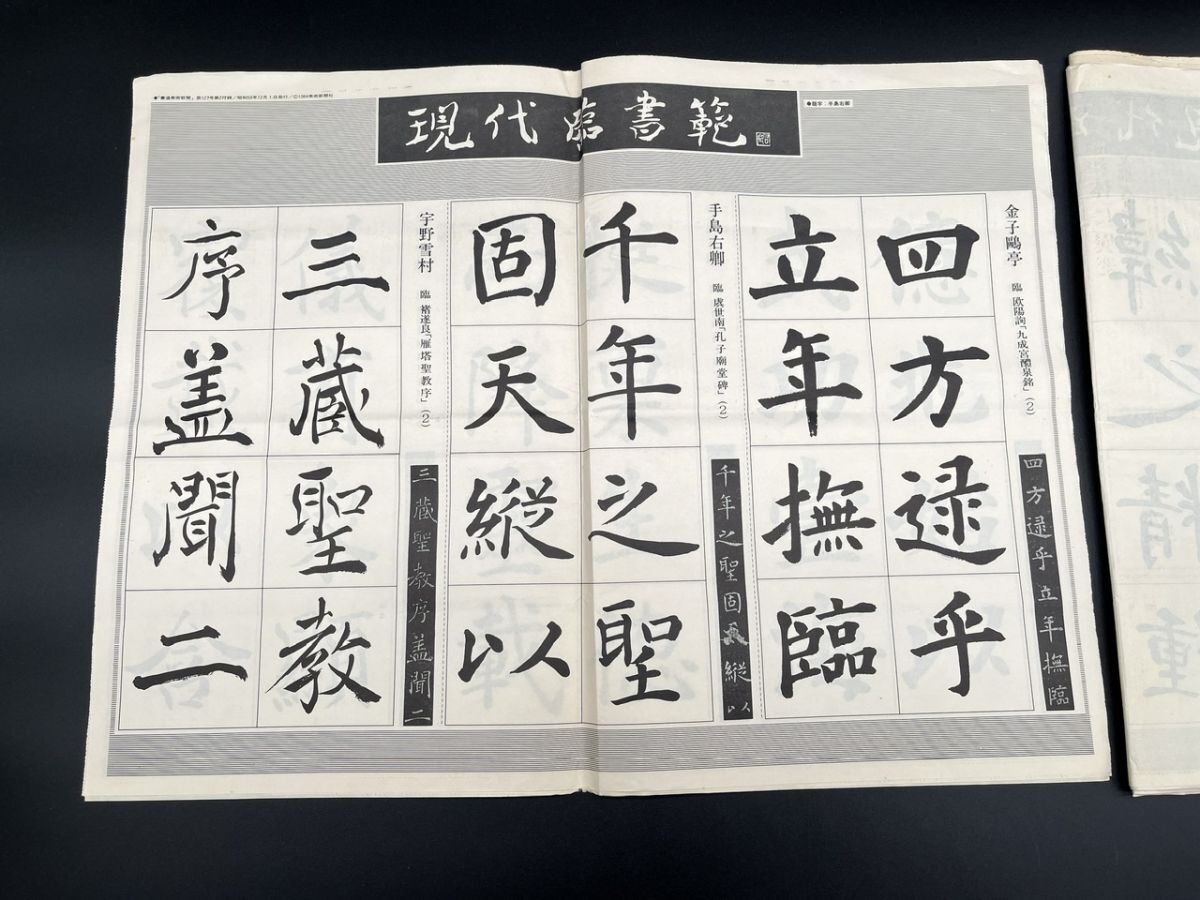 現代臨書範
●題字：手島右卿
金子鷗亭 臨 欧陽詢「九成宮醴泉銘」(2)
四方逯乎
立年撫臨
四方逯乎立年撫臨
手島右卿 臨 虞世南「孔子廟堂碑」(2)
千年之聖
固天縦以
千年之聖固天縦以
宇野雪村 臨 褚遂良「雁塔聖教序」(2)
三蔵聖教
序盖聞二
三蔵聖教序盖聞二